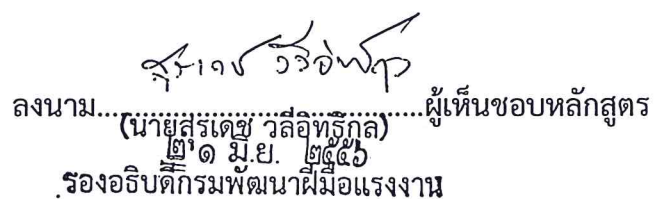 สุรเดช วลีอิทธิกุล
ลงนาม..........................................ผู้เห็นชอบหลักสูตร
(นายสุรเดช วลีอิทธิกุล)
๒๑ มิ.ย. ๒๕๕๖
รองอธิบดีกรมพัฒนาฝีมือแรงงาน